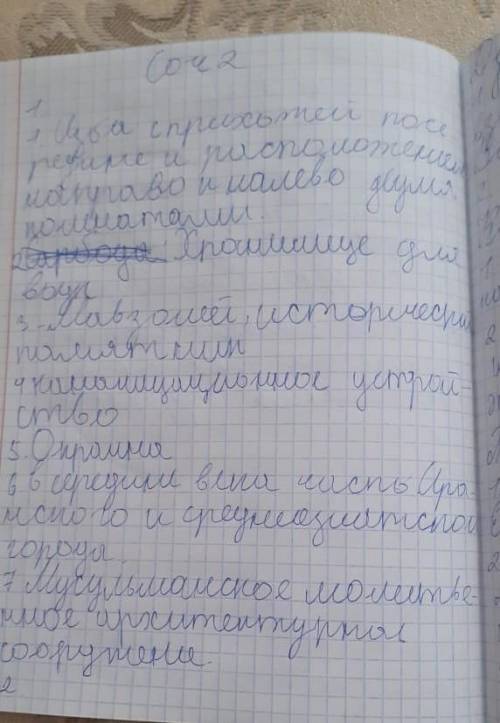 Соч 2
1
1 Изба с прихожей посе
редине и расположением
направо и налево двумя
комнатами.
2 Хранилище для
вод
3. Мавзолей, исторический
памятник
4 канализационное устрой-
ство
5. Окраина
6 В середине века часть Ира-
нского и среднеазиятской
города.
7 Мусульманское молитве-
нное архитектурное
сооружение.
2